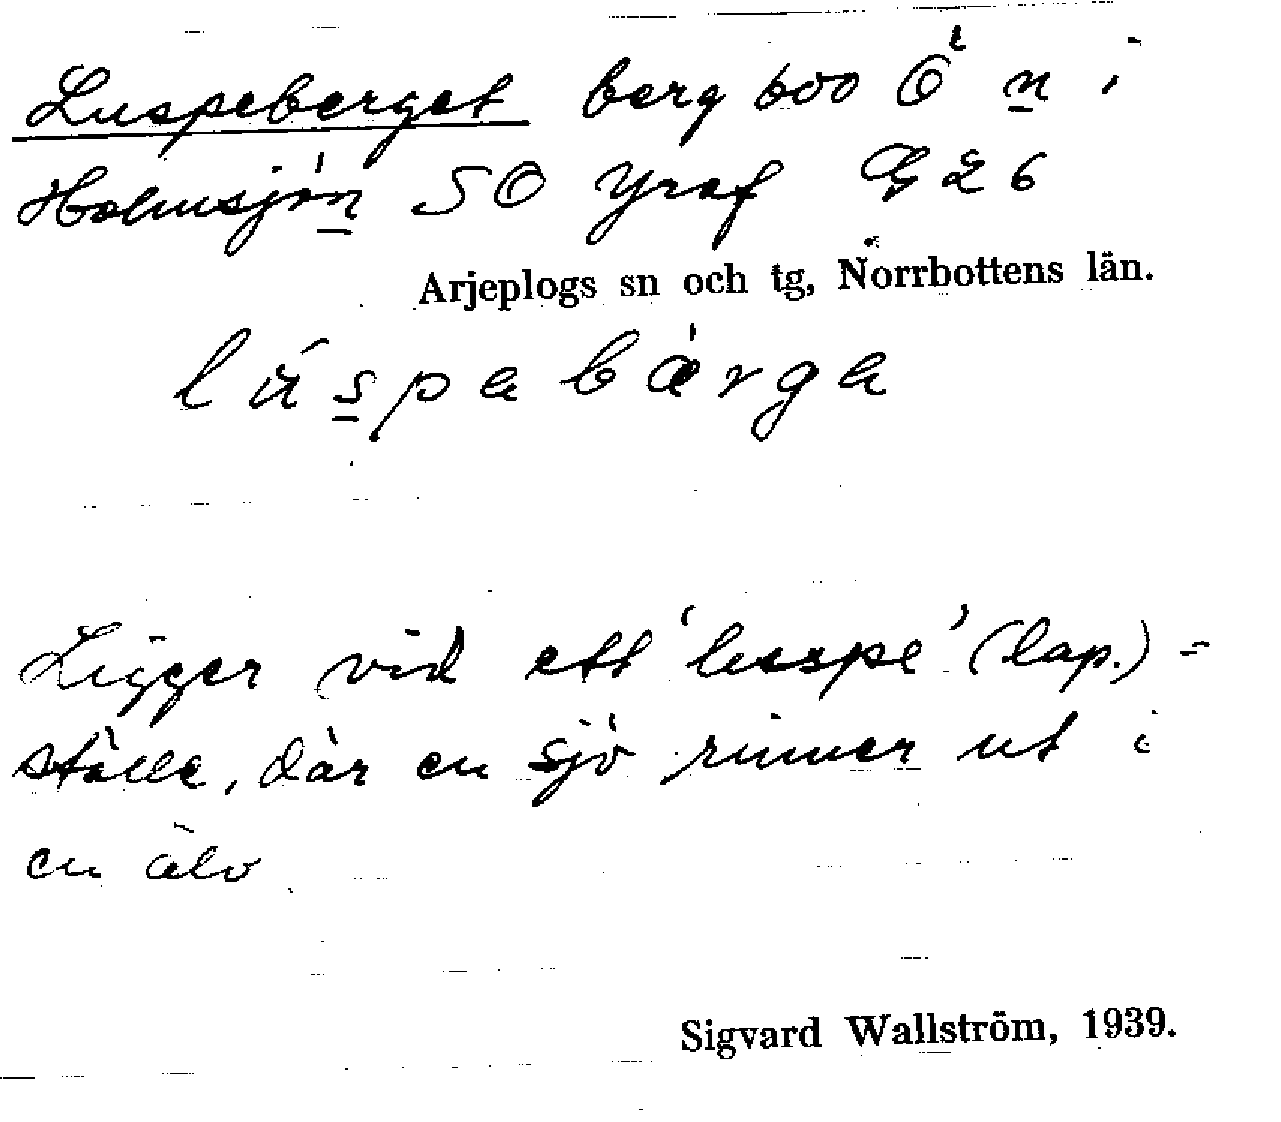 Luspeberget berg 600 Ö n i
Holmsjön SO Yraf G 26
Arjeplogs sn och tg, Norrbottens län.
lúspabærga
Ligger vid ett 'luspe' (lap.) =
ställe, där en sjö rinner ut i
en älv
Sigvard Wallström, 1939.